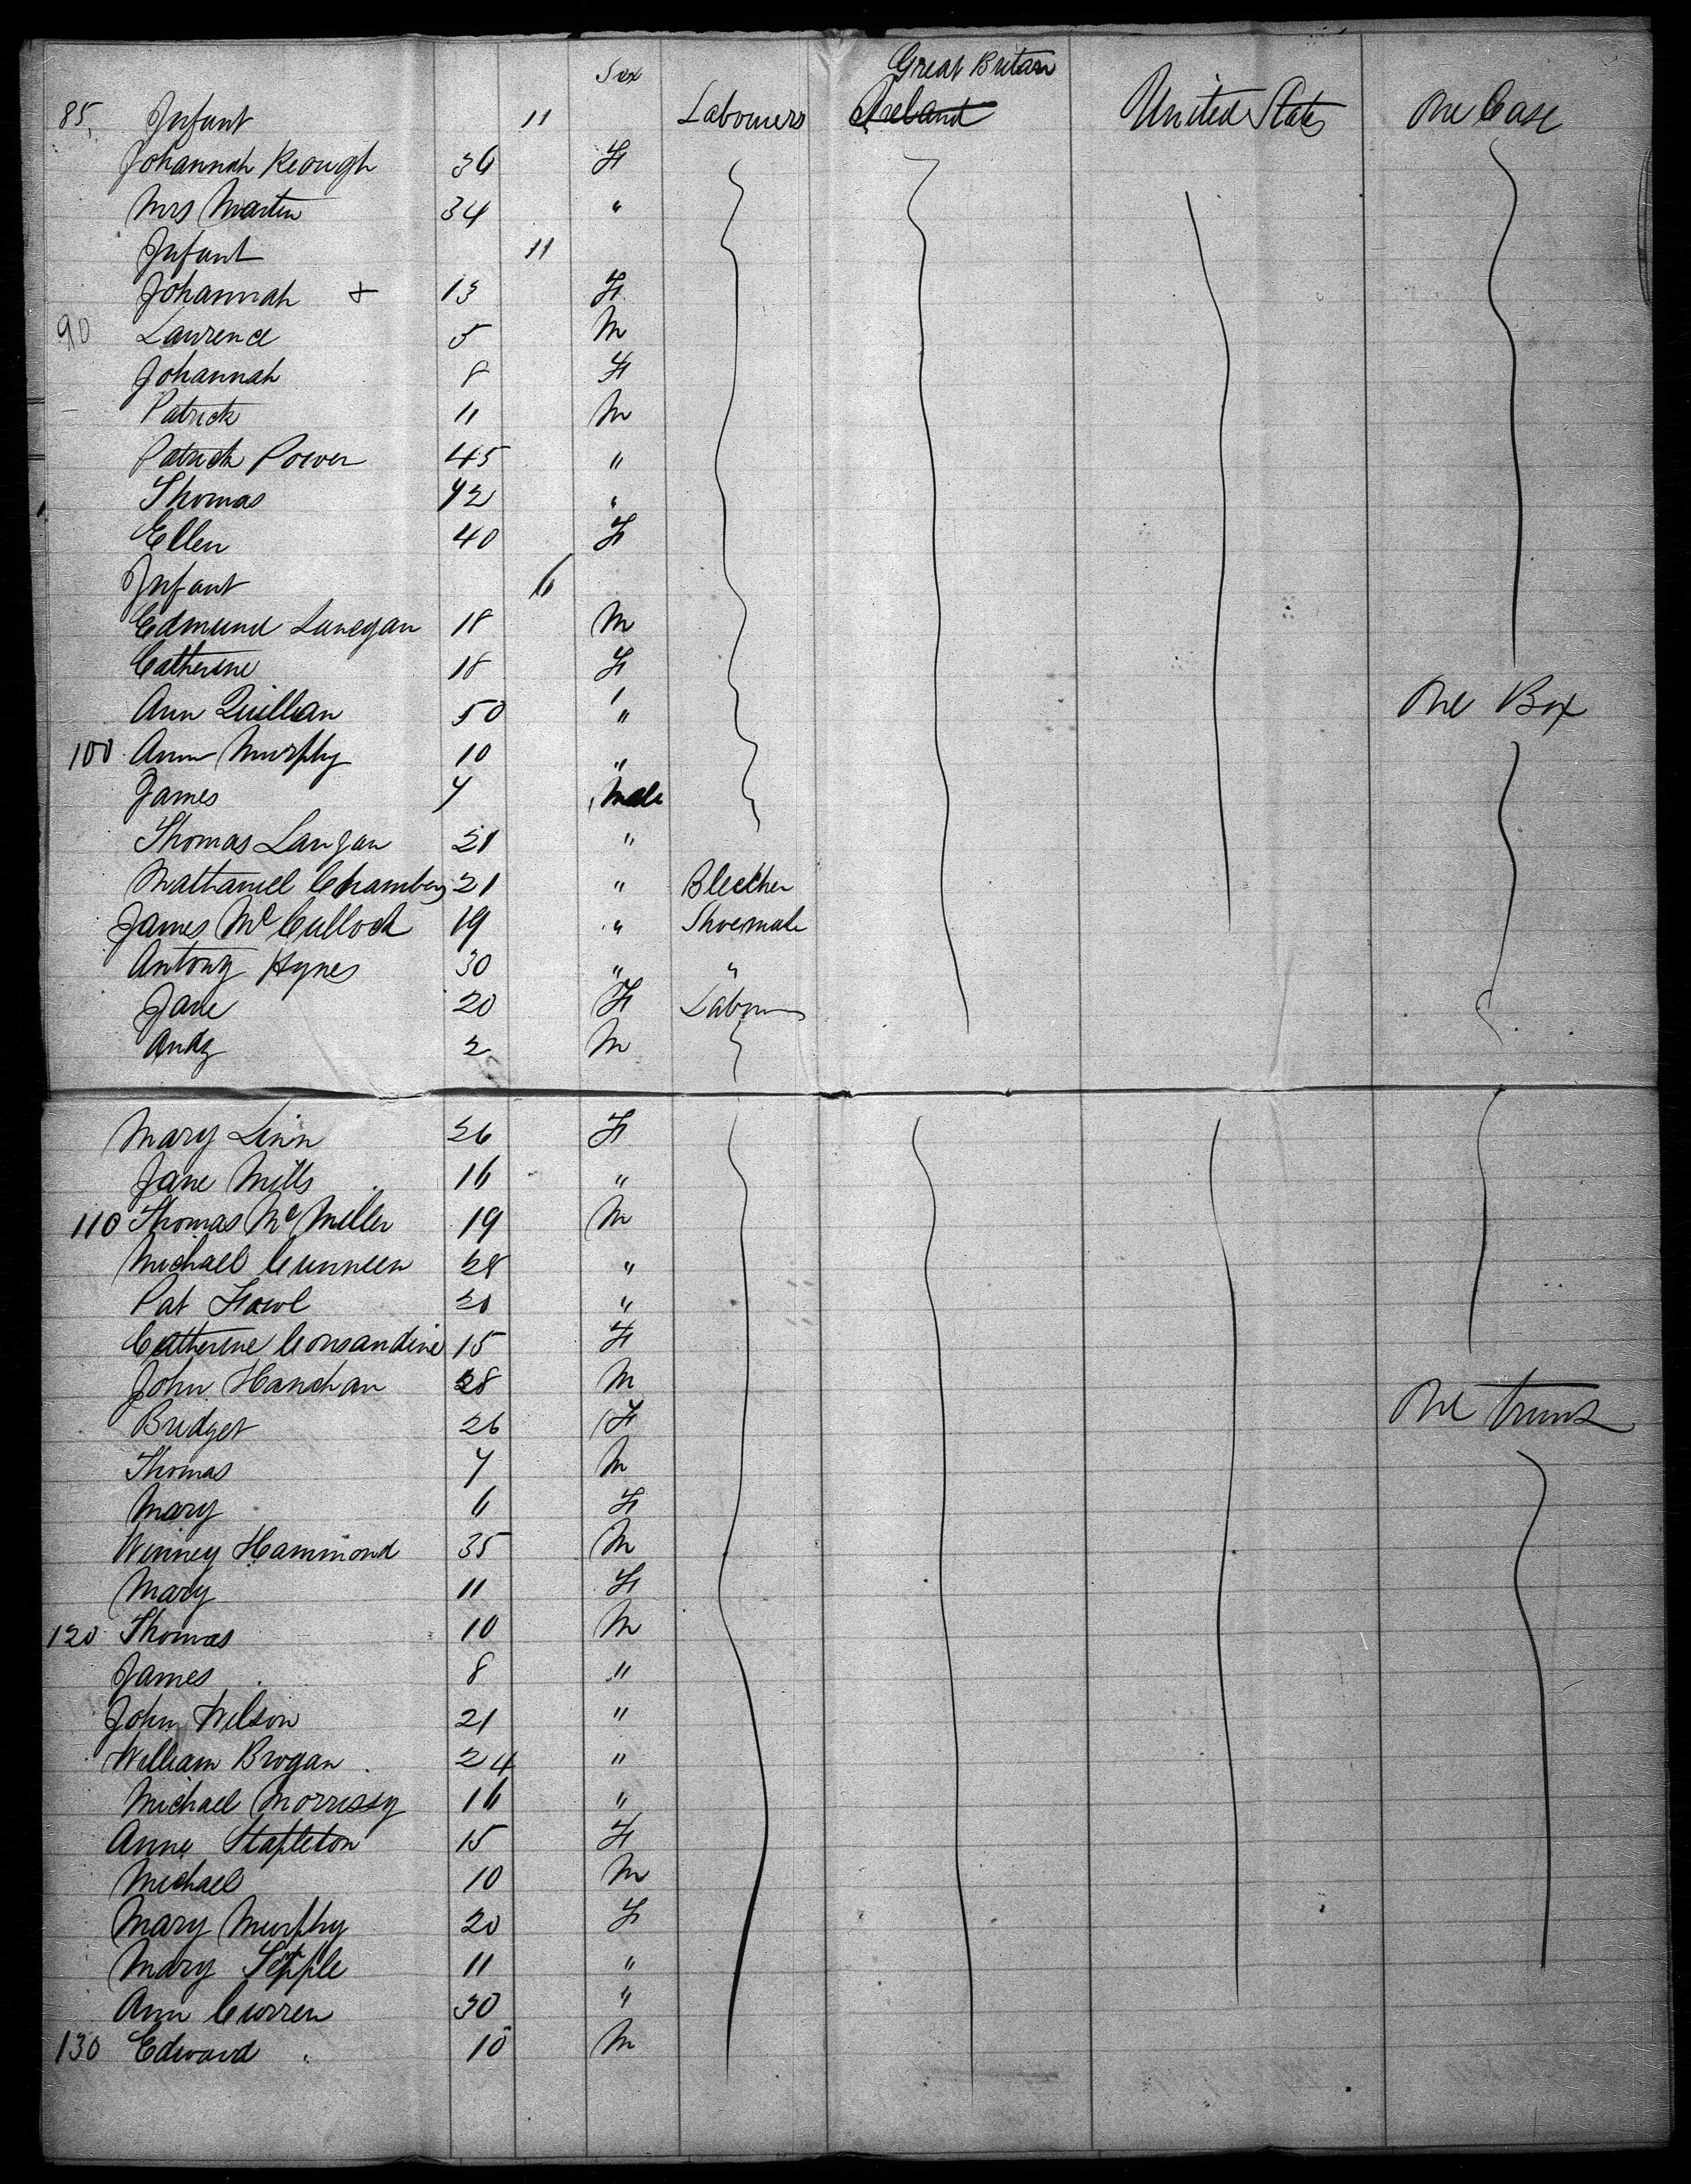 Sex Great Britain
85, Infant 11 Labourers Ireland United States One Case
Johannah Keough 36 F
Mrs Martin 34 "
Infant 11
Johannah + 13 F
90 Lawrence 5 M
Johannah 8 F
Patrick 11 M
Patrick Power 45 "
Thomas 42 "
Ellen 40 F
Infant 6
Edmund Lanegan 18 M
Catherine 18 F
Ann Quillan 50 " One Box
100 Ann Murphy 10 "
James 7 Male
Thomas Langan 21 "
Nathaniel Chambers 21 " Bleecher
James McCulloch 19 " Shoemake
Antony Hynes 30 " "
Jane 20 F Labours
Andy 2 M
Mary Linn 26 F
Jane Mills 16 "
110 Thomas McMiller 19 M
Michael Cunneen 28 "
Pat Fowl 20 "
Catherine Consandine 15 F
John Hanahan 28 M One Trunk
Bridget 26 F
Thomas 7 M
Mary 6 F
Winney Hammond 35 M
Mary 11 F
120 Thomas 10 M
James 8 "
John Wilson 21 "
William Brogan 24 "
Michael Morrissy 16 "
Anne Stapleton 15 F
Michael 10 M
Mary Murphy 20 F
Mary 11 "
Ann Curren 30 "
130 Edward 10 M